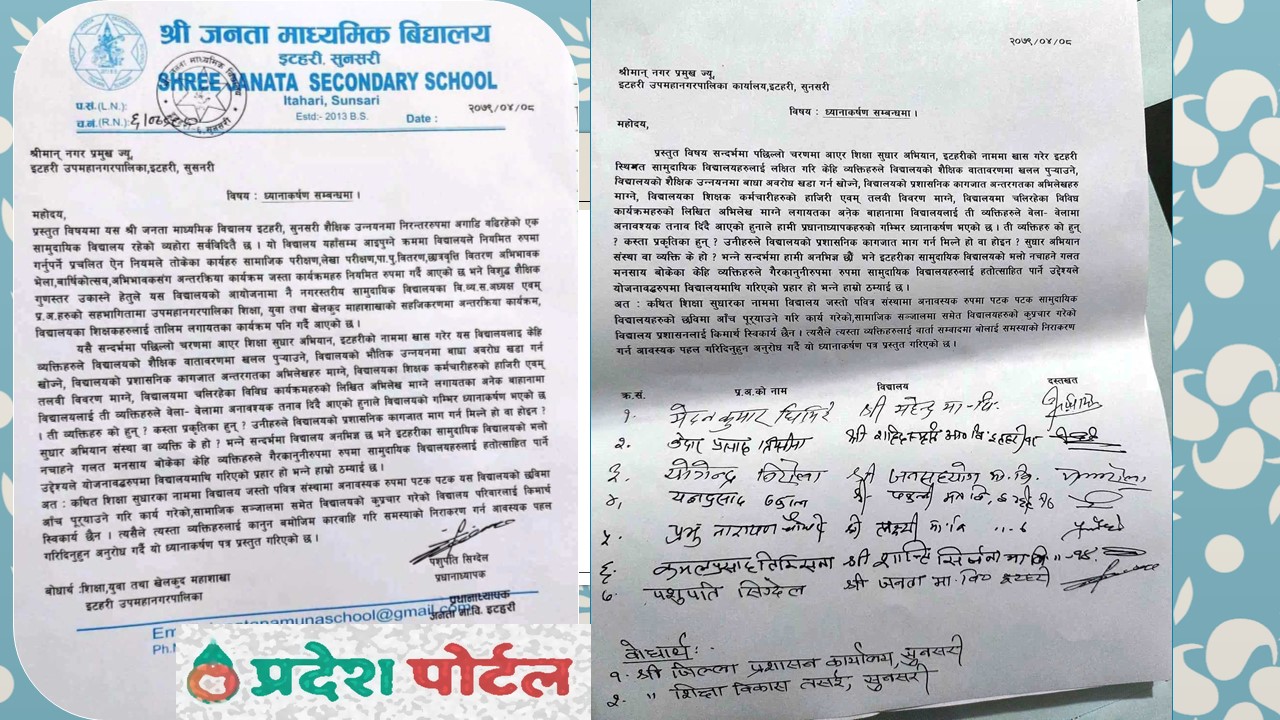 श्री जनता माध्यमिक बिद्यालय
इटहरी, सुनसरी
SHREE JANATA SECONDARY SCHOOL
Itahari, Sunsari
Estd:- 2013 B.S.
प.सं.(L.N.):
च.नं.(R.N.):
Date :
२०७९/०४/०८
श्रीमान् नगर प्रमुख ज्यू,
इटहरी उपमहानगरपालिका,इटहरी, सुसनरी
विषय : ध्यानाकर्षण सम्बन्धमा ।
महोदय,
प्रस्तुत विषयमा यस श्री जनता माध्यमिक विद्यालय इटहरी, सुनसरी शैक्षिक उन्नयनमा निरन्तररुपमा अगाडि बढिरहेको एक
सामुदायिक विद्यालय रहेको व्यहोरा सर्वविदितै छ । यो विद्यालय यहाँसम्म आइपुग्ने क्रममा विद्यालयले नियमित रुपमा
गर्नुपर्ने प्रचलित ऐन नियमले तोकेका कार्यहरु सामाजिक परीक्षण,लेखा परीक्षण,पा.पु.वितरण,छात्रवृत्ति वितरण अभिभावक
भेला,बार्षिकोत्सव,अभिभावकसंग अन्तरक्रिया कार्यक्रम जस्ता कार्यक्रमहरु नियमित रुपमा गर्दै आएको छ भने विशुद्ध शैक्षिक
गुणस्तर उकास्ने हेतुले यस विद्यालयको आयोजनामा नै नगरस्तरीय सामुदायिक विद्यालयका वि.व्य.स.अध्यक्ष एवम्
प्र.अ.हरुको सहभागितामा उपमहानगरपालिका शिक्षा, युवा तथा खेलकुद महाशाखाको सहजिकरणमा अन्तरक्रिया कार्यक्रम,
विद्यालयका शिक्षकहरुलाई तालिम लगायतका कार्यक्रम पनि गर्दै आएको छ ।
यसै सन्दर्भमा पछिल्लो चरणमा आएर शिक्षा सुधार अभियान, इटहरीको नाममा खास गरेर यस विद्यालयलाइ केहि
व्यक्तिहरुले विद्यालयको शैक्षिक वातावरणमा खलल पुऱ्याउने, विद्यालयको भौतिक उन्नयनमा बाधा अवरोध खडा गर्न
खोज्ने, विद्यालयको प्रशासनिक कागजात अन्तरगतका अभिलेखहरु माग्ने, विद्यालयका शिक्षक कर्मचारीहरुको हाजिरी एवम्
तलवी विवरण माग्ने, विद्यालयमा चलिरहेका विविध कार्यक्रमहरुको लिखित अभिलेख माग्ने लगायतका अनेक बाहानामा
विद्यालयलाई ती व्यक्तिहरुले वेला- वेलामा अनावश्यक तनाव दिदै आएको हुनाले यस विद्यालयको गम्भिर ध्यानाकर्षण भएको छ
। ती व्यक्तिहरु को हुन् ? कस्ता प्रकृतिका हुन् ? उनीहरुले विद्यालयको प्रशासनिक कागजात माग गर्न मिल्ने हो वा होइन ?
सुधार अभियान संस्था वा व्यक्ति के हो ? भन्ने सन्दर्भमा विद्यालय अनभिज्ञ छ भने इटहरीका सामुदायिक विद्यालयको भलो
नचाहने गलत मनसाय बोकेका केहि व्यक्तिहरुले गैरकानुनीरुपमा रुपमा सामुदायिक विद्यालयहरुलाई हतोत्साहित पार्ने
उद्देश्यले योजनावद्धरुपमा विद्यालयमाथि गरिएको प्रहार हो भन्ने हाम्रो ठम्याई छ ।
अत : कथित शिक्षा सुधारका नाममा विद्यालय जस्तो पवित्र संस्थामा अनावश्यक रुपमा पटक पटक यस विद्यालयको छविमा
आँच पूऱ्याउने गरि कार्य गरेको,सामाजिक सञ्जालमा समेत विद्यालयको कुप्रचार गरेको विद्यालय परिवारलाई किमार्थ
स्विकार्य छैन । त्यसैले त्यस्ता व्यक्तिहरुलाई कानुन बमोजिम कारवाहि गरि समस्याको निराकरण गर्न आवश्यक पहल
गरिदिनुहुन अनुरोध गर्दै यो ध्यानाकर्षण पत्र प्रस्तुत गरिएको छ ।
पशुपति सिग्देल
प्रधानाध्यापक
प्रधानाध्यापक
जनता मा.वि. इटहरी
बोधार्थ :शिक्षा,युवा तथा खेलकुद महाशाखा
इटहरी उपमहानगरपालिका
namunaschool@gmail.com
प्रदेश पोर्टल
२०७९/०४/०८
श्रीमान् नगर प्रमुख ज्यू,
इटहरी उपमहानगरपालिका कार्यालय,इटहरी, सुनसरी
विषय : ध्यानाकर्षण सम्बन्धमा ।
महोदय,
प्रस्तुत विषय सन्दर्भमा पछिल्लो चरणमा आएर शिक्षा सुधार अभियान, इटहरीको नाममा खास गरेर इटहरी
स्थित सामुदायिक विद्यालयहरुलाई लक्षित गरि केहि व्यक्तिहरुले विद्यालयको शैक्षिक वातावरणमा खलल पु¥याउने,
विद्यालयको शैक्षिक उन्नयनमा बाधा अवरोध खडा गर्न खोज्ने, विद्यालयको प्रशासनिक कागजात अन्तरगतका अभिलेखहरु
माग्ने, विद्यालयका शिक्षक कर्मचारीहरुको हाजिरी एवम् तलवी विवरण माग्ने, विद्यालयमा चलिरहेका विविध
कार्यक्रमहरुको लिखित अभिलेख माग्ने लगायतका अनेक बाहानामा विद्यालयलाई ती व्यक्तिहरुले वेला- वेलामा
अनावश्यक तनाव दिदै आएको हुनाले हामी प्रधानाध्यापकहरुको गम्भिर ध्यानाकर्षण भएको छ । ती व्यक्तिहरु को हुन्
? कस्ता प्रकृतिका हुन् ? उनीहरुले विद्यालयको प्रशासनिक कागजात माग गर्न मिल्ने हो वा होइन ? सुधार अभियान
संस्था वा व्यक्ति के हो ? भन्ने सन्दर्भमा हामी अनभिज्ञ छौं भने इटहरीका सामुदायिक विद्यालयको भलो नचाहने गलत
मनसाय बोकेका केहि व्यक्तिहरुले गैरकानुनीरुपमा रुपमा सामुदायिक विद्यालयहरुलाई हतोत्साहित पार्ने उद्देश्यले
योजनावद्धरुपमा विद्यालयमाथि गरिएको प्रहार हो भन्ने हाम्रो ठम्याई छ ।
अत : कथित शिक्षा सुधारका नाममा विद्यालय जस्तो पवित्र संस्थामा अनावश्यक रुपमा पटक पटक सामुदायिक
विद्यालयहरुको छविमा आँच पूऱ्याउने गरि कार्य गरेको,सामाजिक सञ्जालमा समेत विद्यालयहरुको कुप्रचार गरेको
विद्यालय प्रशासनलाई किमार्थ स्विकार्य छैन । त्यसैले त्यस्ता व्यक्तिहरुलाई वार्ता सम्बादमा बोलाई समस्याको निराकरण
गर्न आवश्यक पहल गरिदिनुहुन अनुरोध गर्दै यो ध्यानाकर्षण पत्र प्रस्तुत गरिएको छ ।
क्र.सं. प्र.अ.को नाम विद्यालय दस्तखत
१. कुमार घिमिरे श्री महेन्द्र मा.वि.
२. प्रसाद श्री
३. योगेन्द्र श्री जनसहयोग मा.वि.
४. श्री
५. प्रभु नारायण चौधरी श्री लक्ष्मी मा.वि
६. कमलप्रसाद तिमसिना श्री शान्ति सिर्जना मा.वि
७. पशुपति सिग्देल श्री जनता मा.वि इटहरी
बोधार्थ:
१. श्री जिल्ला प्रशासन कार्यालय, सुनसरी
२. " शिक्षा विकास सुनसरी